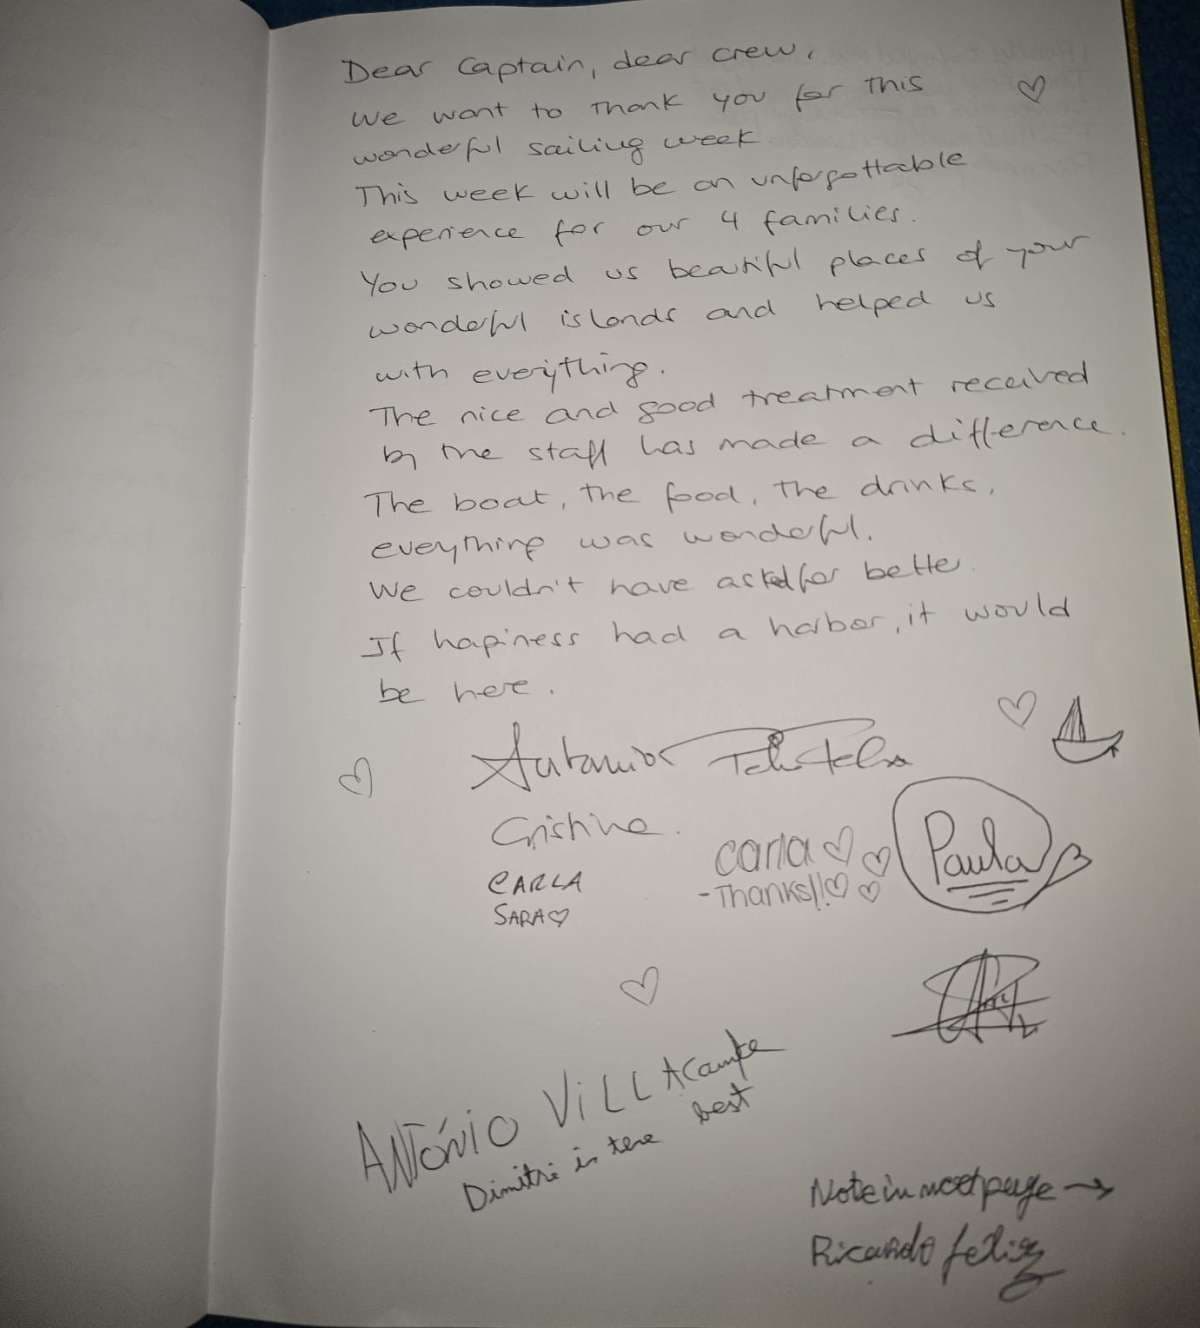 Dear Captain, dear crew,
We want to thank you for this
wonderful sailing week
This week will be an unforgottable
experience for our 4 families.
You showed us beautiful places of your
wonderful islands and helped us
with everything.
The nice and good treatment received
by the staff has made a difference.
The boat, the food, the drinks,
everything was wonderful.
We couldn't have asked for better.
If hapiness had a harbor, it would
be here.
Antonio
Cristina.
CARLA
SARA
carla
-Thanks!!
Paula
ANTÓNIO VILLAcampa
Dimitri is tene best
Note in next page →
Ricardo Feliz